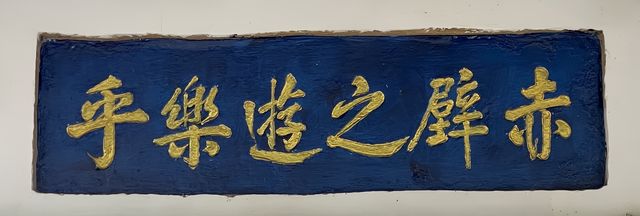 赤壁之遊樂乎